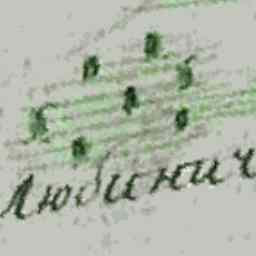 Любинич